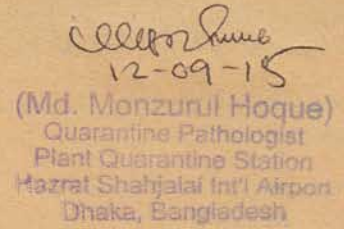 12-09-15
(Md. Monzurul Hoque)
Quarantine Pathologist
Plant Quarantine Station
Hazrat Shahjalal Int'l Airport
Dhaka, Bangladesh